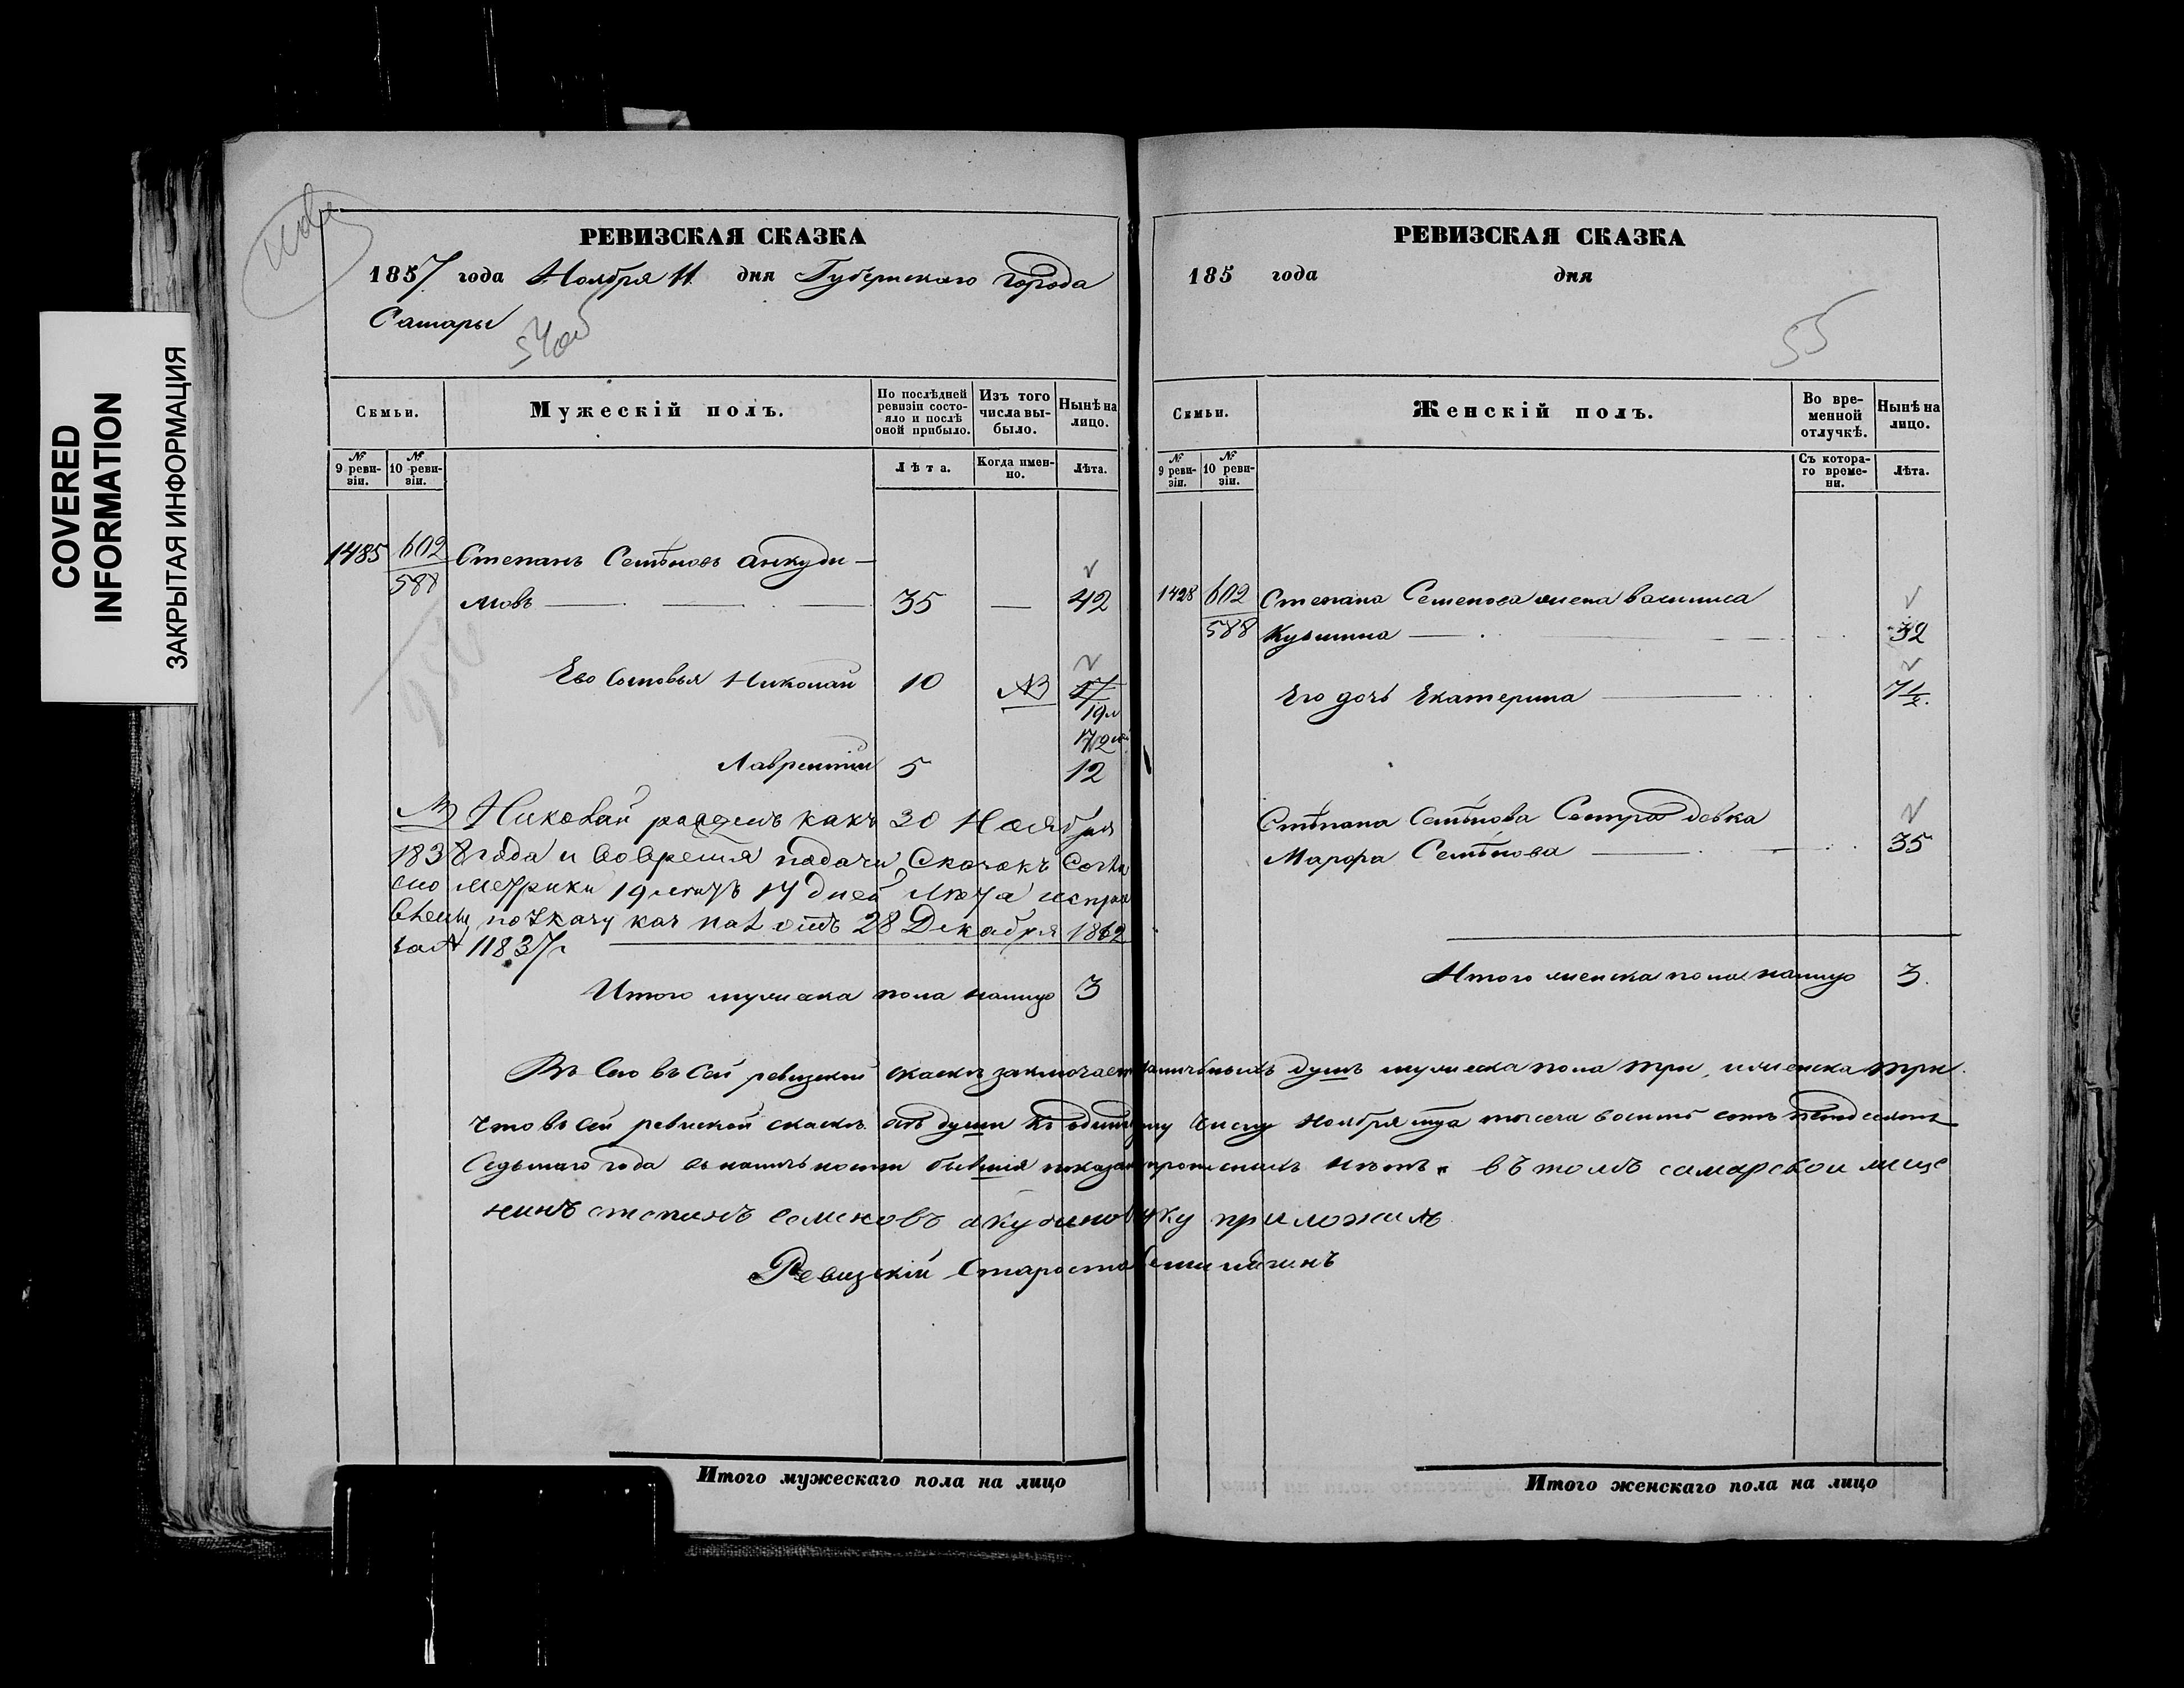 COVERED
INFORMATION
ЗАКРЫТАЯ ИНФОРМАЦИЯ
РЕВИЗСКАЯ СКАЗКА
1857 года Ноября 11 дня Губернскаго города
Самары
Семьи.
Мужескій полъ.
По послѣдней ревизіи состояло и послѣ оной прибыло.
Изъ того числа выбыло.
Нынѣ на лицо.
№ 9 ревизіи.
№ 10 ревизіи.
Лѣта.
Когда именно.
Лѣта.
1485 602 Степанъ Семѣновъ Анкуди-
588 мовъ 35 — 42
Его Сыновья Николай 10 NB 17
19 л
17 дней
Лаврентій 5 12
NB Николай рожденъ какъ 30 Ноября
1838 года и во время подачи Сказакъ Согла
сно метрики 19 летъ 17 дней Лета испра
влены по Указу каз пал отъ 28 Декабря 1862
за № 11837
Итого мужеска пола налицо 3
РЕВИЗСКАЯ СКАЗКА
185 года дня
55
Семьи.
Женскій полъ.
Во временной отлучкѣ.
Нынѣ на лицо.
№ 9 ревизіи.
№ 10 ревизіи.
Съ котораго времени.
Лѣта.
1428 602 Степана Семенова жена Василиса
588 Кузмина 32
Его дочь Екатерина
Стѣпана Семѣнова Сестра девка
Марфа Семѣнова 35
Итого женска пола налицо 3
Въ сей ревизской скаскѣ заключает наличныхъ душъ мужеска пола три, и женска три.
что въ сей ревиской скаскѣ всѣ души къ числу Ноября тысеча восимь сотъ петдесятъ
Седьмаго года въ наличьности бывшия показан прописныхъ нѣтъ. въ томъ самарской меще
нинъ степанъ семеновъ акудинов руку приложилъ
Ревизскій Староста
Итого мужескаго пола на лицо
Итого женскаго пола на лицо